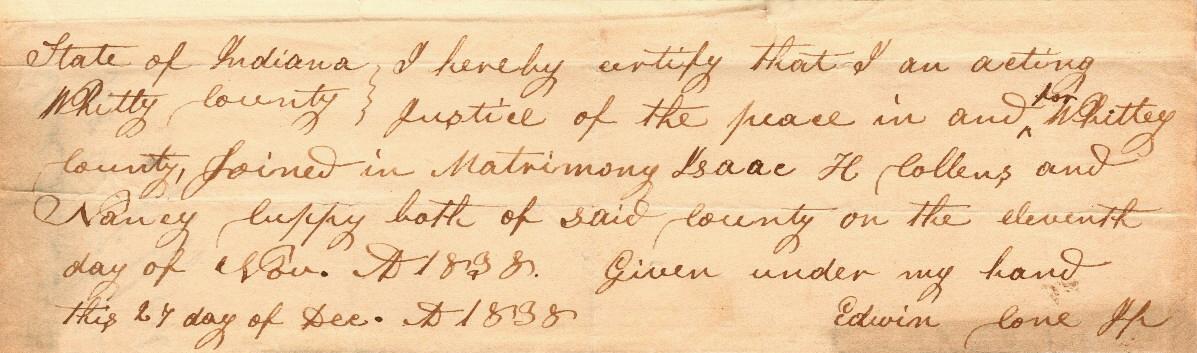 State of Indiana } I hereby certify that I an acting
Whitty County } Justice of the peace in and ^for Whittey
County, Joined in Matrimony Isaac H Collens and
Nancy Cuppy both of said County on the eleventh
day of Nov. AD 1838. Given under my hand
this 27 day of Dec. AD 1838 Edwin Cone JP